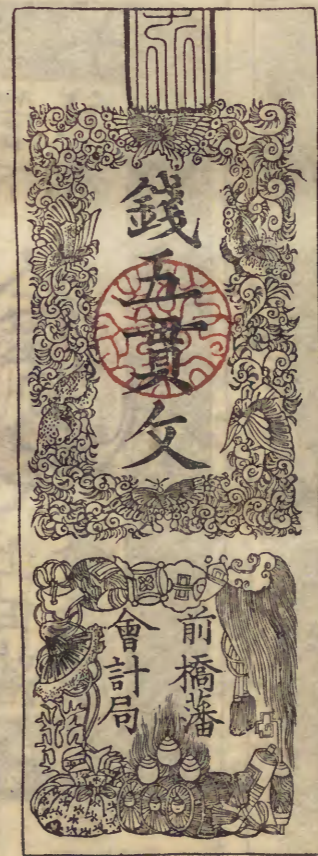 錢五貫文
前橋藩
會計局